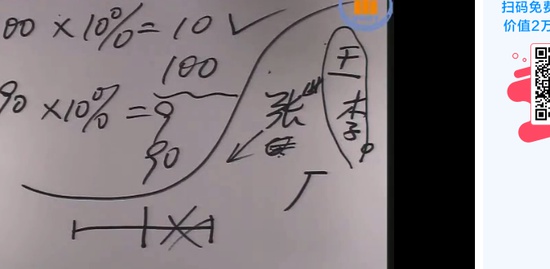 00 × 10% = 10 ✓
100
90 × 10% = 9
90
张
王
李
扫码免费
价值2万